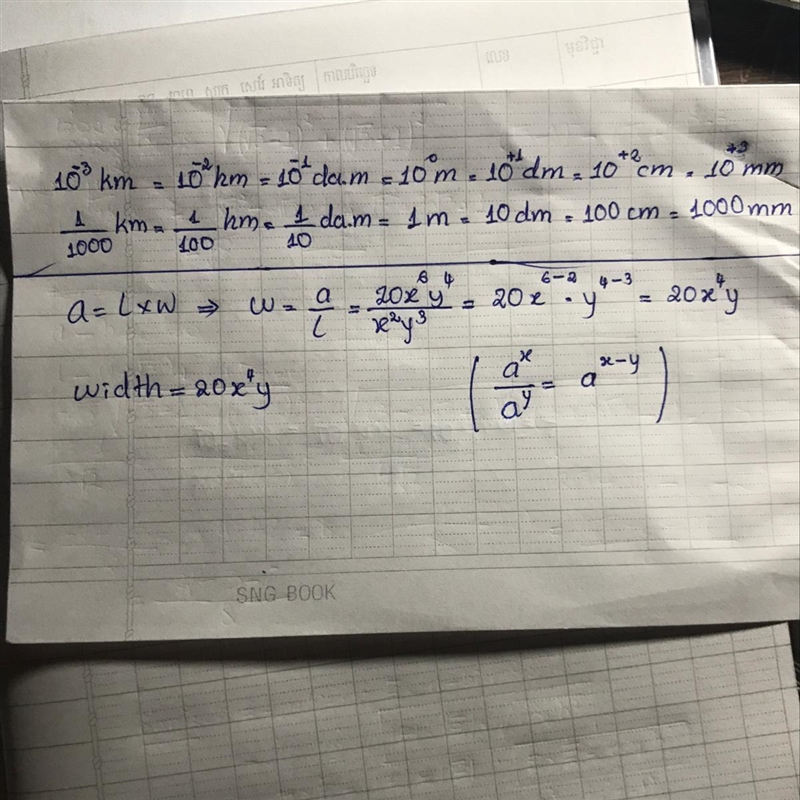 សៅរ៍ អាទិត្យ កាលបរិច្ឆេទ លេខ មុខវិជ្ជា
10⁻³ km = 10⁻² hm = 10⁻¹ da.m = 10⁰ m = 10⁺¹ dm = 10⁺² cm = 10⁺³ mm
1/1000 km = 1/100 hm = 1/10 da.m = 1 m = 10 dm = 100 cm = 1000 mm
a = L × W ⇒ W = a/L = 20x⁶y⁴/x²y³ = 20x⁶⁻² · y⁴⁻³ = 20x⁴y
width = 20x⁴y (aˣ/aʸ = aˣ⁻ʸ)
SNG BOOK